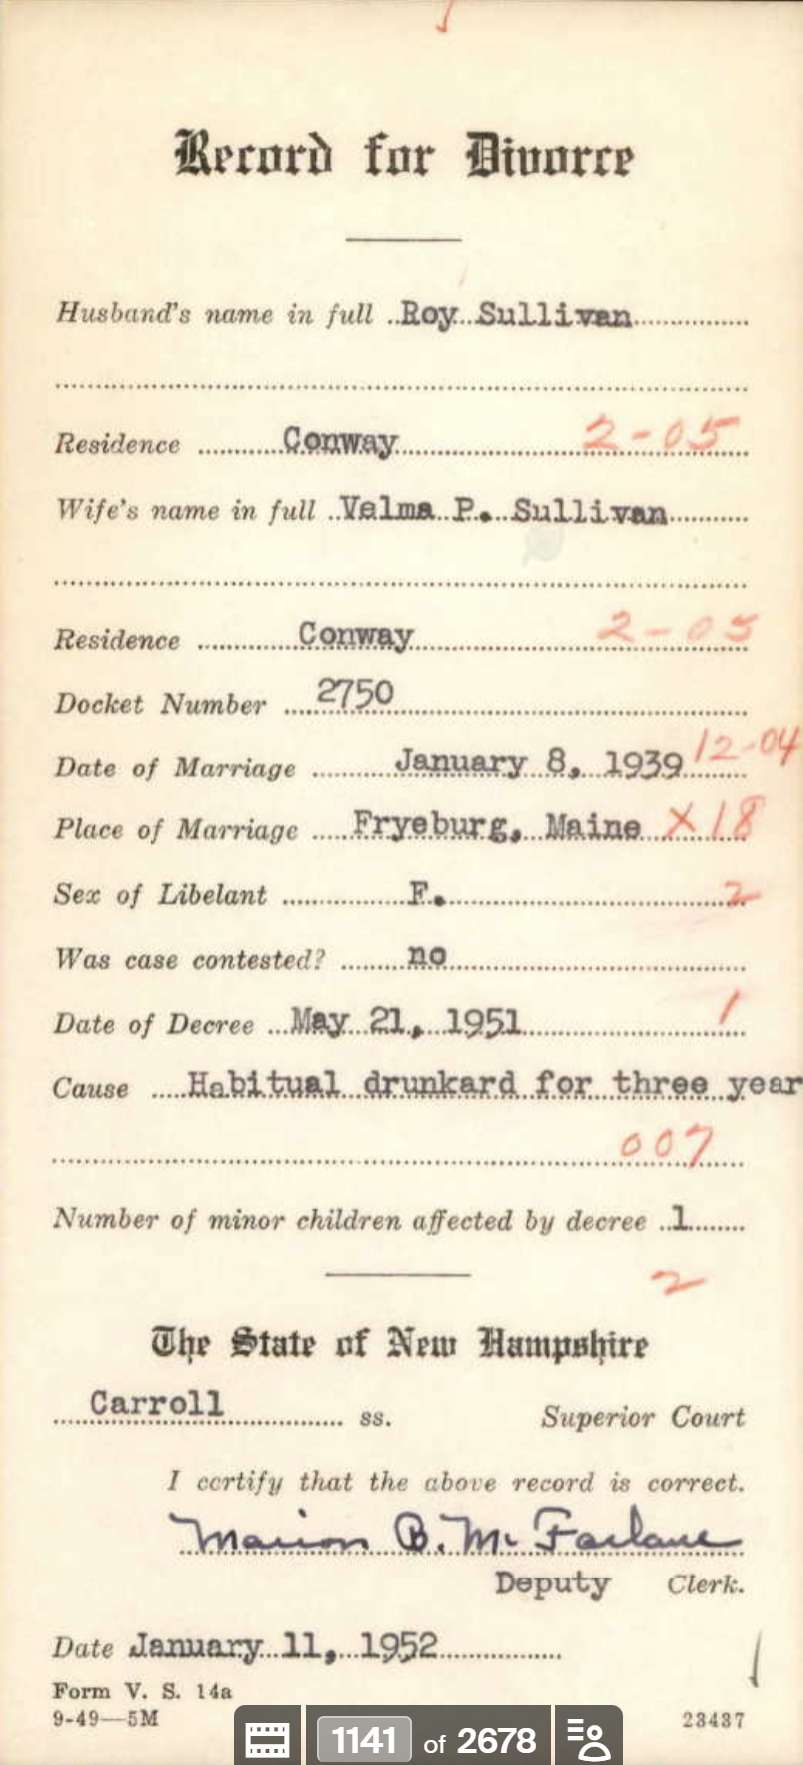 Record for Divorce
Husband's name in full Roy Sullivan
Residence Conway 2-05
Wife's name in full Velma P. Sullivan
Residence Conway 2-05
Docket Number 2750
Date of Marriage January 8, 1939 12-04
Place of Marriage Fryeburg, Maine X18
Sex of Libelant F. 2
Was case contested? no
Date of Decree May 21, 1951 1
Cause Habitual drunkard for three year
007
Number of minor children affected by decree 1
2
The State of New Hampshire
Carroll ss. Superior Court
I certify that the above record is correct.
Marion B. McFarlane
Deputy Clerk.
Date January 11, 1952
Form V. S. 14a
9-49—5M 23437
1141 of 2678